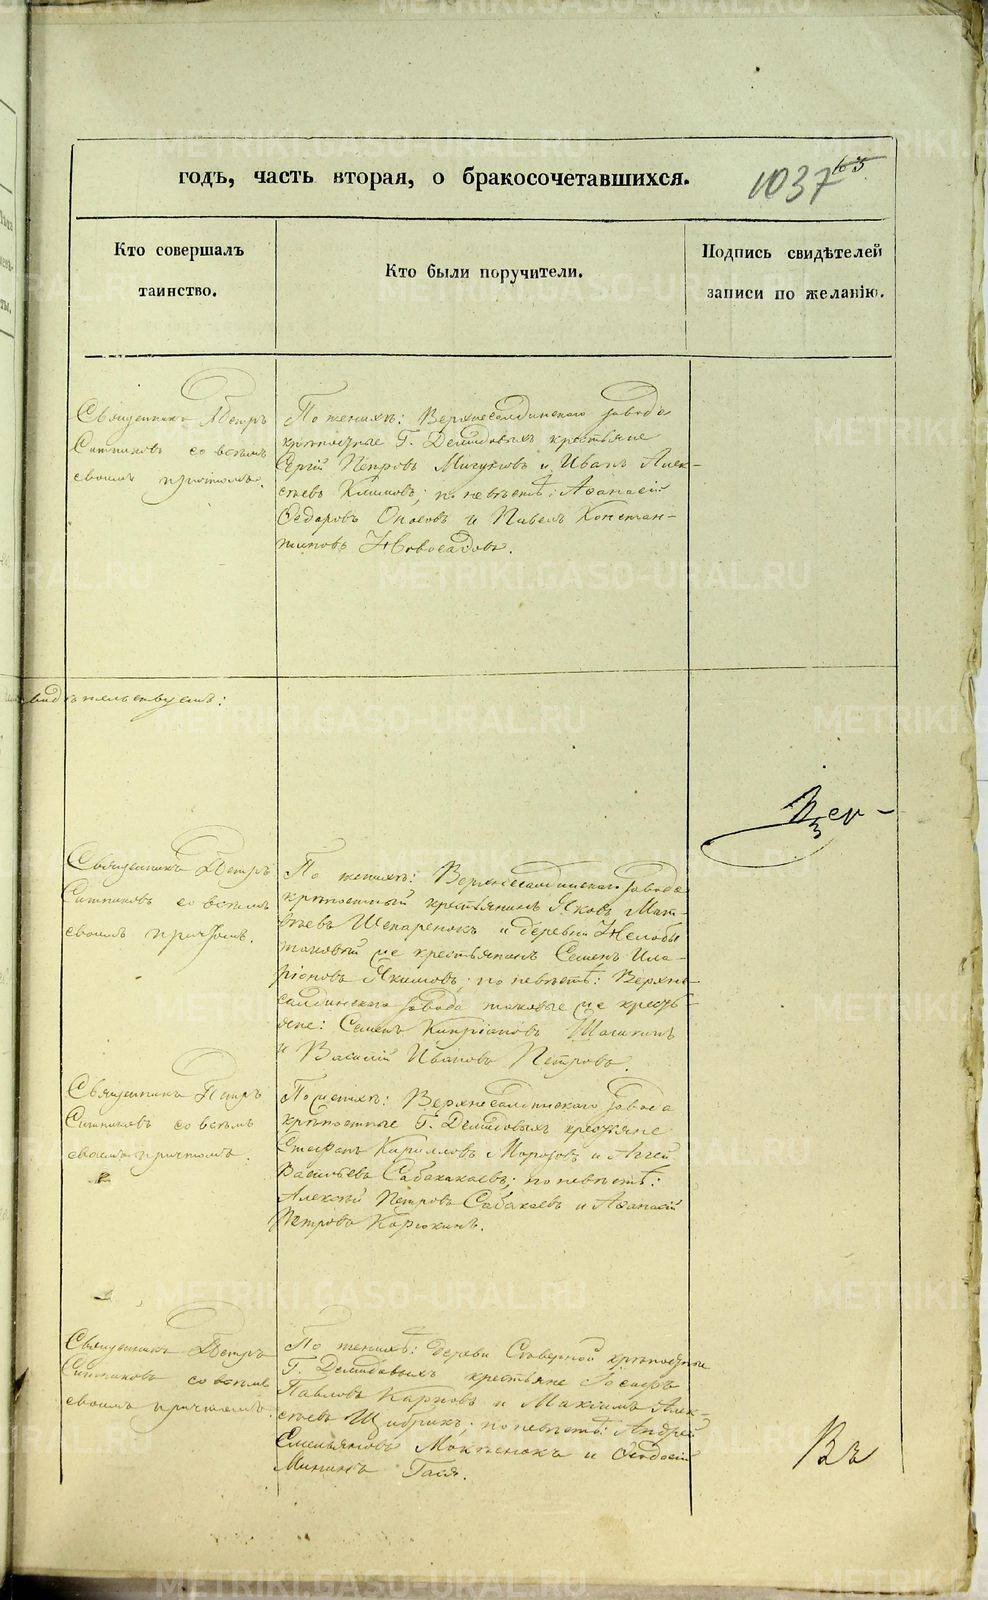 годъ, часть вторая, о бракосочетавшихся.
1037
65
Кто совершалъ
таинство.
Кто были поручители.
Подпись свидѣтелей
записи по желанію.
Священникъ Петръ
Ситниковъ со всѣмъ
своимъ причтомъ.
По женихѣ: Верхнесалдинскаго завода
крѣпостные Г. Демидовыхъ крестьяне
Сергій Петровъ Мичуровъ и Иванъ Алек-
сѣевъ Климовъ; по невѣстѣ: Аѳанасій
Ѳедоровъ Опасовъ и Павелъ Констан-
тиновъ Новосадовъ.
свидѣтельствуетъ:
Вер-
Священникъ Петръ
Ситниковъ со всѣмъ
своимъ причтомъ.
По женихѣ: Верхнесалдинскаго завода
крѣпостный крестьянинъ Яковъ Мат-
вѣевъ Шепаренокъ и деревни Нелобы
таковый же крестьянинъ Семенъ Ила-
ріоновъ Якимовъ; по невѣстѣ: Верхне-
салдинскаго завода таковые же кресть-
яне: Семенъ Кипріановъ
и Василій Ивановъ Петровъ.
Священникъ Петръ
Ситниковъ со всѣмъ
своимъ причтомъ.
По женихѣ: Верхнесалдинскаго завода
крѣпостные Г. Демидовыхъ крестьяне
Стефанъ Кирилловъ Морозовъ и Аггей
Васильевъ Сабакаевъ; по невѣстѣ:
Алексѣй Петровъ Сабакаевъ и Аѳанасій
Петровъ Карюкинъ.
Священникъ Петръ
Ситниковъ со всѣмъ
своимъ причтомъ.
По женихѣ: деревни Северной крѣпостные
Г. Демидовыхъ крестьяне Іосифъ
Павловъ Карповъ и Максимъ Алек-
сѣевъ Щибрикъ; по невѣстѣ: Андрей
Емельяновъ Мокѣенокъ и Ѳеодосій
Мининъ Гаевъ.
Въ
METRIKI.GASO-URAL.RU